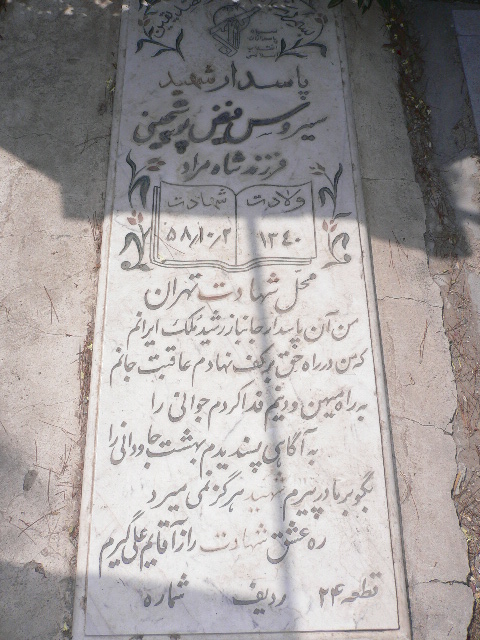 پاسدار شهید
سیروس فیض پرشمینی
فرزند شاه مراد
ولادت
۱۳۴۰
شهادت
۵۸/۱۰/۲
محل شهادت تهران
من آن پاسدار جانباز رشید ملک ایرانم
که من در راه حق بر کف نهادم عاقبت جانم
به راه میهن و دینم فدا کردم جوانی را
به آگاهی پسندیدم بهشت جاودانی را
بگو بر مادر پیرم شهید هرگز نمی میرد
ره عشق شهادت را ز آقایم علی گیرم
قطعه ۲۴ ردیف شماره